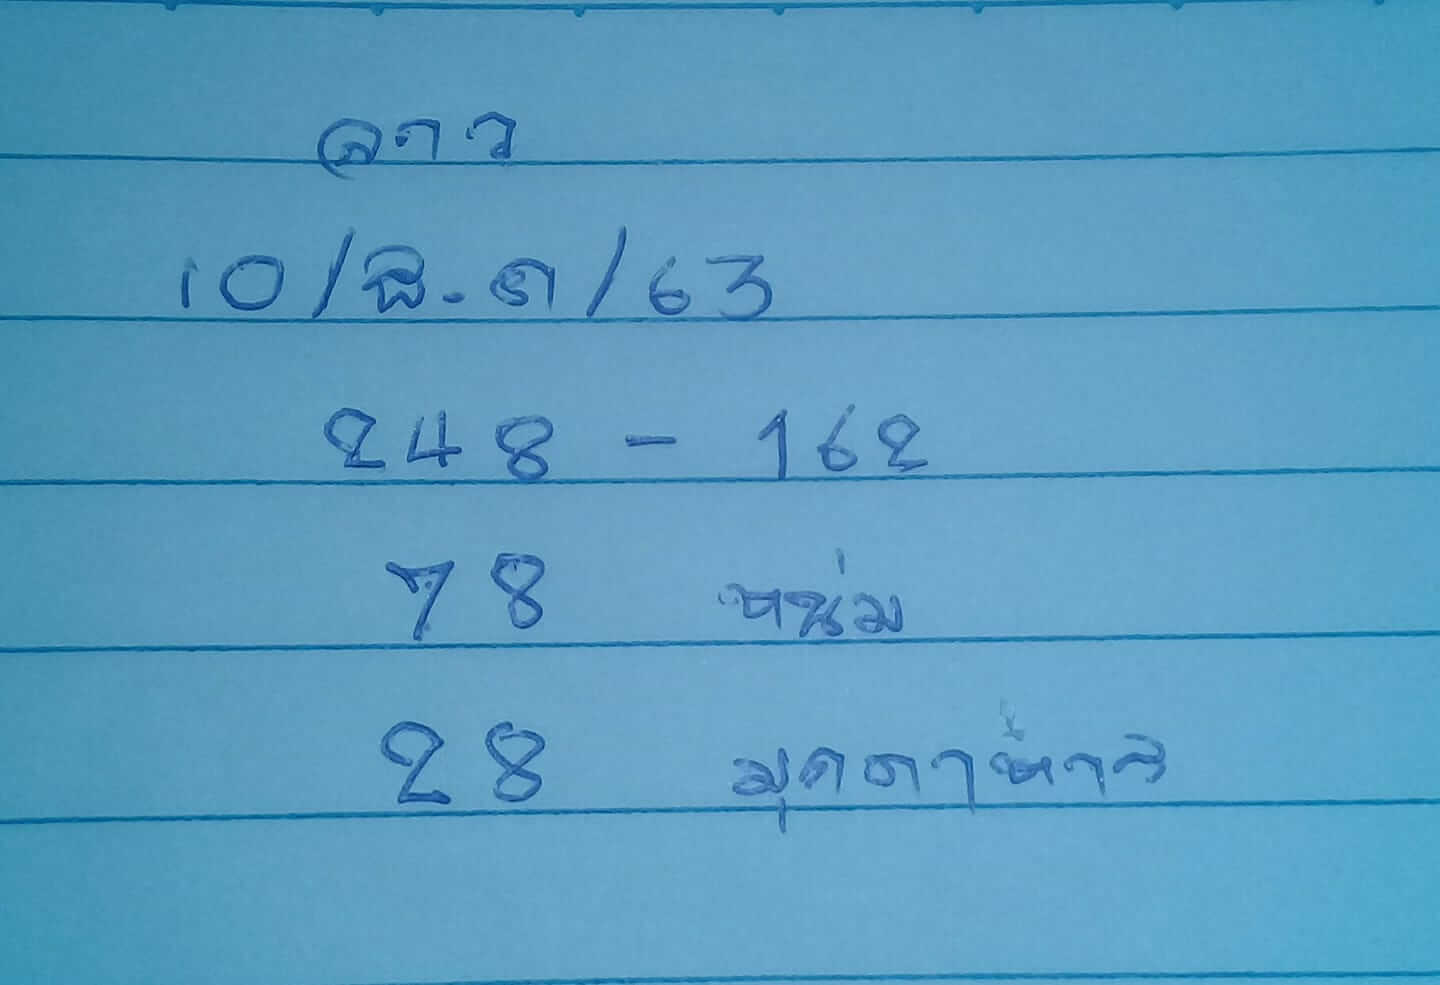 ลาว
10/ส.ค/63
248 - 162
78 หน่ม
28 มุกดาห้าร